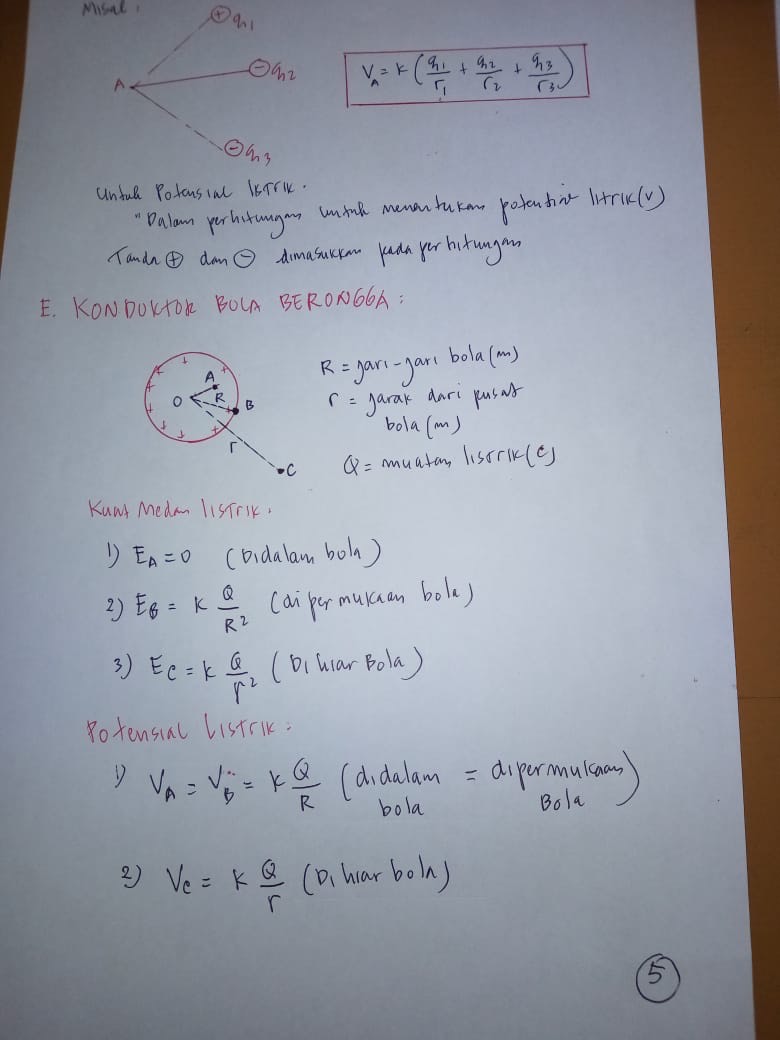 Misal :
⊕q1
A ⊖q2
⊖q3
V_A = k (q1/r1 + q2/r2 + q3/r3)
Untuk Potensial lstrik.
"Dalam perhitungan untuk menentukan potensial litrik (v)
Tanda ⊕ dan ⊖ dimasukkan pada perhitungan
E. KONDUKTOR BOLA BERONGGA :
A
O R B
r
C
R = jari-jari bola (m)
r = jarak dari pusat
bola (m)
Q = muatan listrik (C)
Kuat Medan listrik.
1) E_A = 0 (Didalam bola)
2) E_B = k Q/R² (di permukaan bola)
3) E_C = k Q/r² (Di luar Bola)
Potensial Listrik :
1) V_A = V_B = k Q/R (didalam bola = dipermukaan Bola)
2) V_C = k Q/r (Di luar bola)
5